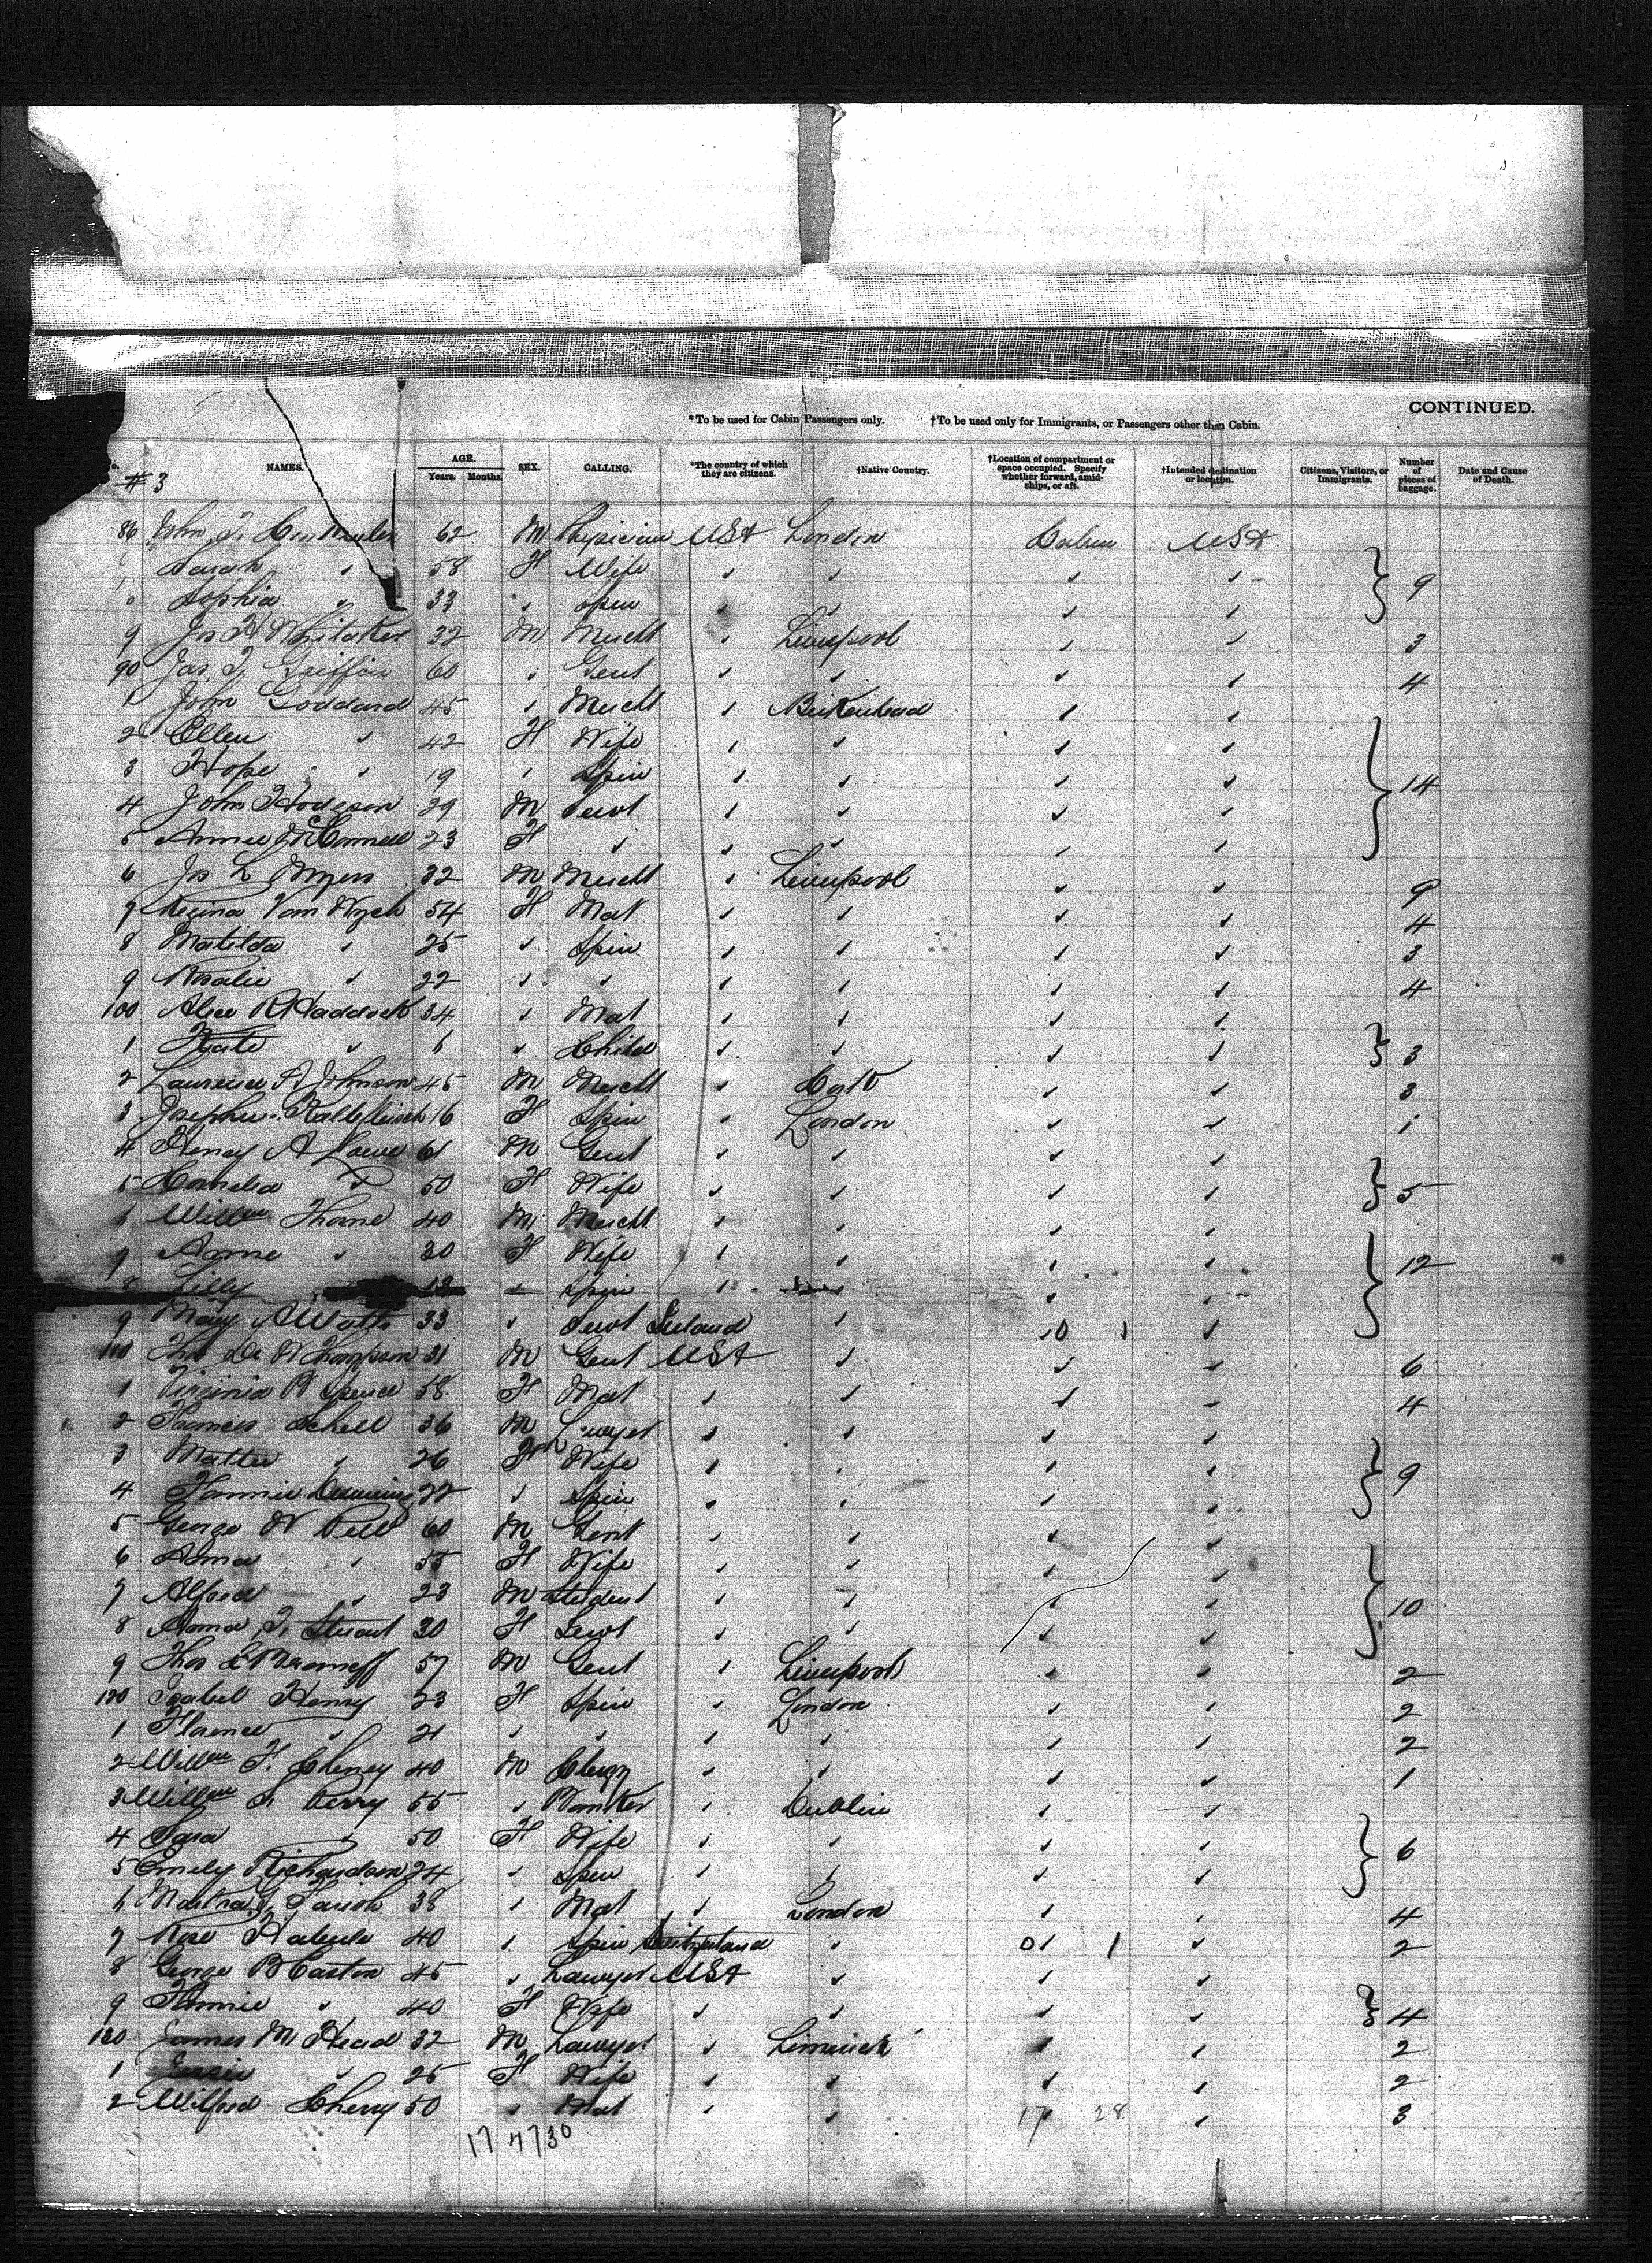 CONTINUED.
*To be used for Cabin Passengers only. †To be used only for Immigrants, or Passengers other than Cabin.
NAMES. AGE. Years. Months. SEX. CALLING. *The country of which they are citizens. †Native Country. †Location of compartment or space occupied. Specify whether forward, amidships, or aft. †Intended destination or location. Citizens, Visitors, or Immigrants. Number of pieces of baggage. Date and Cause of Death.
# 3
86 John 62 M Physician USA London USA
Sarah " 58 F Wife " " " "
Sophia " 33 " Spin " " " " 9
9 Jas H Whitaker 32 M Mercht " Liverpool " " 3
90 Jas. T. Griffin 60 " Gent " " " " 4
1 John Goddard 45 " Mercht " Birkenhead " "
2 Ellen " 42 F Wife " " " "
3 Hope " 19 " Spin " " " " 14
4 John Hodgson 29 M Servt " " " "
5 Annie McConnell 23 F " " " " "
6 Jos L Myers 32 M Mercht " Liverpool " " 9
7 Regina Van Wyck 54 F Mat " " " " 4
8 Matilda " 25 " Spin " " " " 3
9 Rosalie " 22 " " " " " " 4
100 Alice R Haddock 34 " Mat " " " "
1 Kate " 6 " Child " " " " 3
2 Laurence A Johnson 45 M Mercht " Cork " " 3
3 16 F Spin " London " " 1
4 Henry A 61 M Gent " " " "
5 Cornelia " 50 F Wife " " " " 5
6 Willm Thorne 40 M Mercht " " " "
7 Anne " 30 F Wife " " " " 12
8 Lilly " 13 " Spin " " " "
9 Mary A Watts 33 " Servt Ireland " 10 1 "
110 Thos De W Thompson 31 M Gent USA " " " 6
1 Virginia B Spence 58 F Mat " " " " 4
2 Francis Schell 36 M Lawyer " " " "
3 Mattie " 26 F Wife " " " " 9
4 Fannie 22 " Spin " " " "
5 George W Pell 60 M Gent " " " "
6 Anna " 55 F Wife " " " "
7 Alfred " 23 M Student " " " " 10
8 Anna T. Stuart 30 F Servt " " " "
9 Thos 57 M Gent " Liverpool " " 2
120 Isabel Henry 23 F Spin " London " " 2
1 Florence " 21 " " " " " " 2
2 Willm F. Cheney 40 M Clergy " " " " 1
3 Willm S Perry 55 " Banker " Dublin " "
4 Sara " 50 F Wife " " " " 6
5 Emely Richardson 24 " Spin " " " "
6 Martha 38 " Mat " London " " 4
7 Rose 40 " Spin Switzerland " 01 1 " 2
8 George B 45 " Lawyer USA " " "
9 Fannie " 40 F Wife " " " " 4
130 James M Head 32 M Lawyer " Limerick " " 2
1 " 25 F Wife " " " " 2
2 Wilfred Cherry 50 " Mat " " 17 28 " 3
17 4730